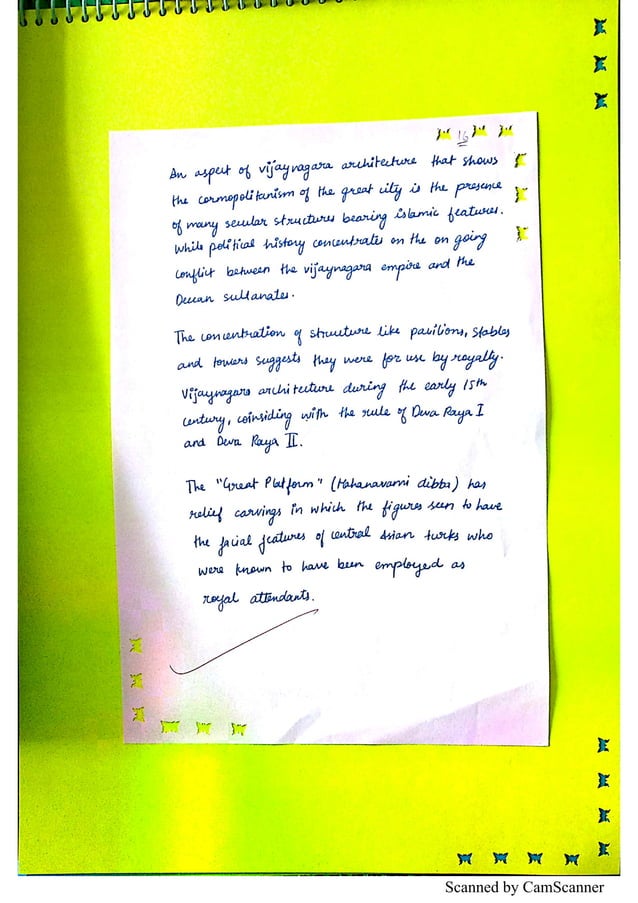 16
An aspect of vijaynagara architecture that shows
the cosmopolitanism of the great city is the presence
of many secular structures bearing islamic features.
While political history concentrates on the on going
conflict between the vijaynagara empire and the
Deccan sultanates.
The concentration of structure like pavilions, stables
and towers suggests they were for use by royalty.
Vijaynagara architecture during the early 15th
century, coinsiding with the rule of Deva Raya I
and Deva Raya II.
The "Great Platform" (Mahanavami dibba) has
relief carvings in which the figures seen to have
the facial features of central Asian turks who
were known to have been employed as
royal attendants.
Scanned by CamScanner